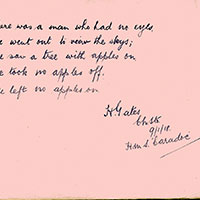 ere was a man who had no eyes
e went out to view the skys;
e saw a tree with apples on
e took no apples off.
e left no apples on
H. Yates
9/1/18
H.M.S. Caradoc